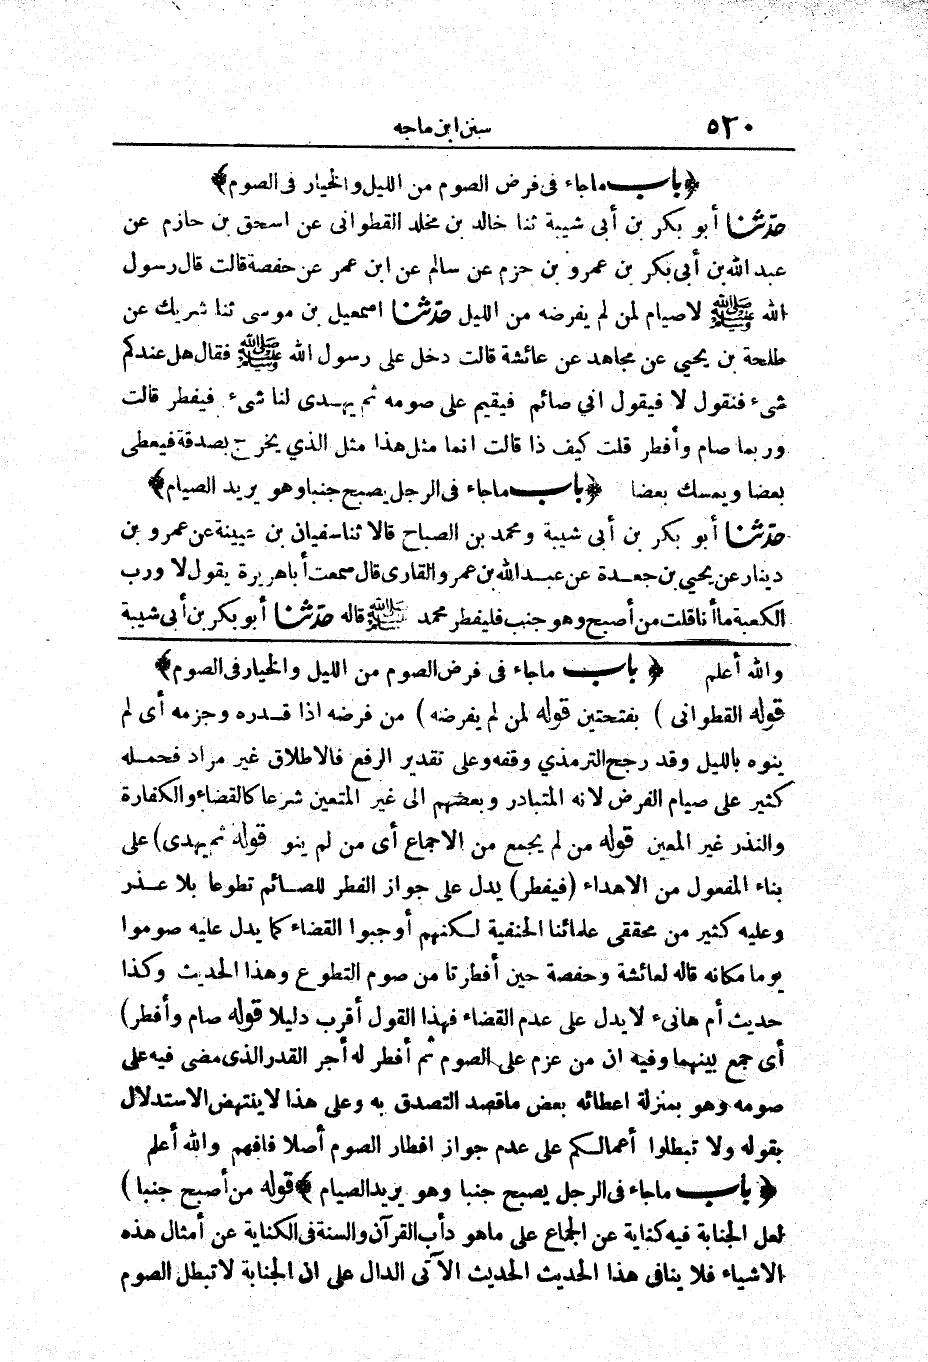 ٥٢٠ سنن ابن ماجه
﴿باب ماجاء فى فرض الصوم من الليل والخيار فى الصوم﴾
حدثنا أبو بكر بن أبى شيبة ثنا خالد بن مخلد القطوانى عن اسحق بن حازم عن
عبد الله بن أبى بكر بن عمرو بن حزم عن سالم عن ابن عمر عن حفصة قالت قال رسول
الله ﷺ لاصيام لمن لم يفرضه من الليل حدثنا اسمعيل بن موسى ثنا شريك عن
طلحة بن يحيى عن مجاهد عن عائشة قالت دخل على رسول الله ﷺ فقال هل عندكم
شىء فنقول لا فيقول اني صائم فيقيم على صومه ثم يهدى لنا شىء فيفطر قالت
وربما صام وأفطر قلت كيف ذا قالت انما مثل هذا مثل الذي يخرج بصدقة فيعطى
بعضا ويمسك بعضا ﴿باب ماجاء فى الرجل يصبح جنبا وهو يريد الصيام﴾
حدثنا أبو بكر بن أبى شيبة ومحمد بن الصباح قالا ثنا سفيان بن عيينة عن عمرو بن
دينار عن يحيي بن جعدة عن عبد الله بن عمرو القارى قال سمعت أبا هريرة يقول لا ورب
الكعبة ما أنا قلت من أصبح وهو جنب فليفطر محمد ﷺ قاله حدثنا أبو بكر بن أبى شيبة
والله أعلم ﴿باب ماجاء فى فرض الصوم من الليل والخيار فى الصوم﴾
قوله القطوانى ) بفتحتين قوله لمن لم يفرضه ) من فرضه اذا قدره وجزمه أى لم
ينوه بالليل وقد رجح الترمذي وقفه وعلى تقدير الرفع فالاطلاق غير مراد فحمله
كثير على صيام الفرض لانه المتبادر وبعضهم الى غير المتعين شرعا كالقضاء والكفارة
والنذر غير المعين قوله من لم يجمع من الاجماع أى من لم ينو قوله ثم يهدى) على
بناء المفعول من الاهداء (فيفطر) يدل على جواز الفطر للصائم تطوعا بلا عذر
وعليه كثير من محققى علمائنا الحنفية لكنهم أوجبوا القضاء كما يدل عليه صوموا
يوما مكانه قاله لعائشة وحفصة حين أفطرتا من صوم التطوع وهذا الحديث وكذا
حديث أم هانىء لا يدل على عدم القضاء فهذا القول أقرب دليلا قوله صام وأفطر)
أى جمع بينهما وفيه ان من عزم على الصوم ثم أفطر له أجر القدر الذى مضى فيه على
صومه وهو بمنزلة اعطائه بعض ماقصد التصدق به وعلى هذا لا ينتهض الاستدلال
بقوله ولا تبطلوا أعمالكم على عدم جواز افطار الصوم أصلا فافهم والله أعلم
﴿باب ماجاء فى الرجل يصبح جنبا وهو يريد الصيام﴾ قوله من أصبح جنبا )
لعل الجنابة فيه كناية عن الجماع على ماهو دأب القرآن والسنة فى الكناية عن أمثال هذه
الاشياء فلا ينافى هذا الحديث الحديث الآتى الدال على ان الجنابة لا تبطل الصوم